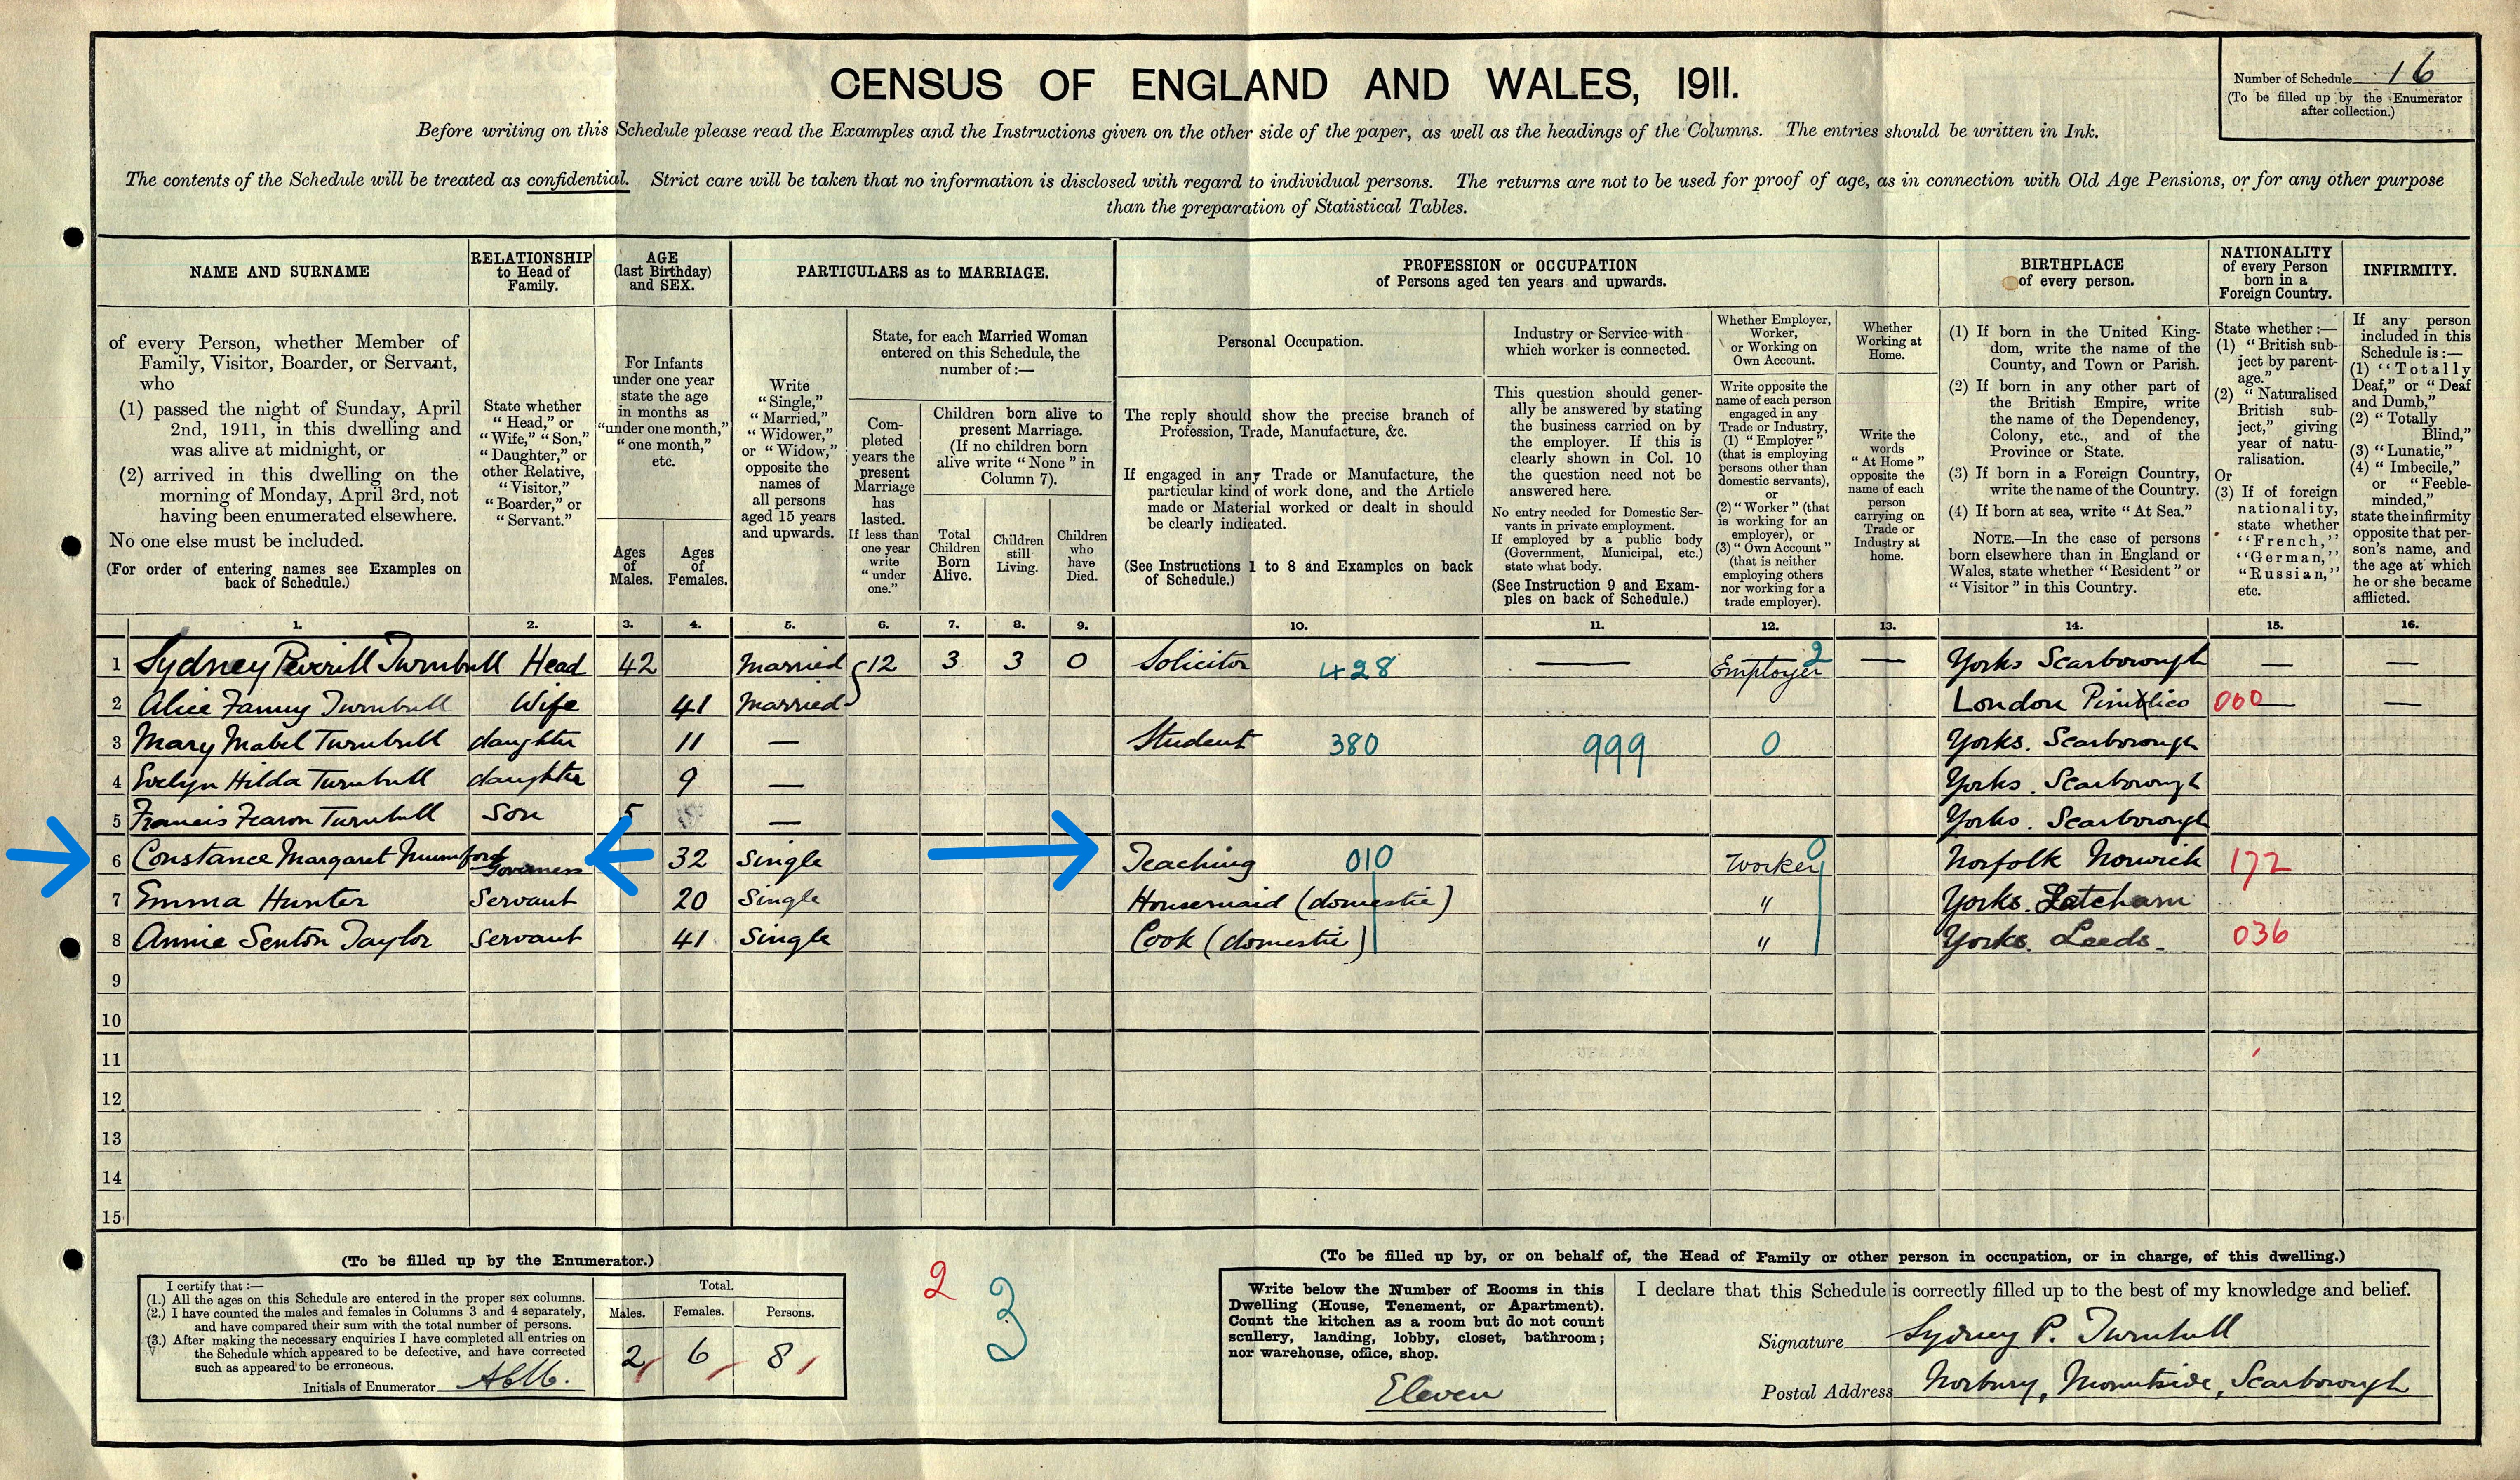 CENSUS OF ENGLAND AND WALES, 1911.
Number of Schedule 16
(To be filled up by the Enumerator
after collection.)
Before writing on this Schedule please read the Examples and the Instructions given on the other side of the paper, as well as the headings of the Columns. The entries should be written in Ink.
The contents of the Schedule will be treated as confidential. Strict care will be taken that no information is disclosed with regard to individual persons. The returns are not to be used for proof of age, as in connection with Old Age Pensions, or for any other purpose
than the preparation of Statistical Tables.
NAME AND SURNAME
of every Person, whether Member of
Family, Visitor, Boarder, or Servant,
who
(1) passed the night of Sunday, April
2nd, 1911, in this dwelling and
was alive at midnight, or
(2) arrived in this dwelling on the
morning of Monday, April 3rd, not
having been enumerated elsewhere.
No one else must be included.
(For order of entering names see Examples on
back of Schedule.)
RELATIONSHIP
to Head of
Family.
State whether
"Head," or
"Wife," "Son,"
"Daughter," or
other Relative,
"Visitor,"
"Boarder," or
"Servant."
AGE
(last Birthday)
and SEX.
For Infants
under one year
state the age
in months as
"under one month,"
"one month,"
etc.
Ages
of
Males.
Ages
of
Females.
PARTICULARS as to MARRIAGE.
Write
"Single,"
"Married,"
"Widower,"
or "Widow,"
opposite the
names of
all persons
aged 15 years
and upwards.
State, for each Married Woman
entered on this Schedule, the
number of:—
Com-
pleted
years the
present
Marriage
has
lasted.
If less than
one year
write
"under
one."
Children born alive to
present Marriage.
(If no children born
alive write "None" in
Column 7).
Total
Children
Born
Alive.
Children
still
Living.
Children
who
have
Died.
PROFESSION or OCCUPATION
of Persons aged ten years and upwards.
Personal Occupation.
The reply should show the precise branch of
Profession, Trade, Manufacture, &c.
If engaged in any Trade or Manufacture, the
particular kind of work done, and the Article
made or Material worked or dealt in should
be clearly indicated.
(See Instructions 1 to 8 and Examples on back
of Schedule.)
Industry or Service with
which worker is connected.
This question should gener-
ally be answered by stating
the business carried on by
the employer. If this is
clearly shown in Col. 10
the question need not be
answered here.
No entry needed for Domestic Ser-
vants in private employment.
If employed by a public body
(Government, Municipal, etc.)
state what body.
(See Instruction 9 and Exam-
ples on back of Schedule.)
Whether Employer,
Worker,
or Working on
Own Account.
Write opposite the
name of each person
engaged in any
Trade or Industry,
(1) "Employer"
(that is employing
persons other than
domestic servants),
or
(2) "Worker" (that
is working for an
employer), or
(3) "Own Account"
(that is neither
employing others
nor working for a
trade employer).
Whether
Working at
Home.
Write the
words
"At Home"
opposite the
name of each
person
carrying on
Trade or
Industry at
home.
BIRTHPLACE
of every person.
(1) If born in the United King-
dom, write the name of the
County, and Town or Parish.
(2) If born in any other part of
the British Empire, write
the name of the Dependency,
Colony, etc., and of the
Province or State.
(3) If born in a Foreign Country,
write the name of the Country.
(4) If born at sea, write "At Sea."
NOTE.—In the case of persons
born elsewhere than in England or
Wales, state whether "Resident" or
"Visitor" in this Country.
NATIONALITY
of every Person
born in a
Foreign Country.
State whether:—
(1) "British sub-
ject by parent-
age."
(2) "Naturalised
British sub-
ject," giving
year of natu-
ralisation.
Or
(3) If of foreign
nationality,
state whether
"French,"
"German,"
"Russian,"
etc.
INFIRMITY.
If any person
included in this
Schedule is:—
(1) "Totally
Deaf," or "Deaf
and Dumb,"
(2) "Totally
Blind,"
(3) "Lunatic,"
(4) "Imbecile,"
or "Feeble-
minded,"
state the infirmity
opposite that per-
son's name, and
the age at which
he or she became
afflicted.
1. 2. 3. 4. 5. 6. 7. 8. 9. 10. 11. 12. 13. 14. 15. 16.
1 Sydney Peverill Turnbull Head 42 Married 12 3 3 0 Solicitor 428 — Employer 2 — Yorks Scarborough — —
2 Alice Fanny Turnbull Wife 41 Married London Pimlico 000 — —
3 Mary Mabel Turnbull daughter 11 — Student 380 999 0 Yorks. Scarborough
4 Evelyn Hilda Turnbull daughter 9 — Yorks. Scarborough
5 Francis Fearon Turnbull Son 5 — Yorks. Scarborough
6 Constance Margaret Mumford Governess 32 Single Teaching 010 Worker 0 Norfolk Norwich 172
7 Emma Hunter Servant 20 Single Housemaid (domestic) " Yorks.
8 Annie Senton Taylor Servant 41 Single Cook (domestic) " Yorks. Leeds. 036
9
10
11
12
13
14
15
(To be filled up by the Enumerator.)
I certify that:—
(1.) All the ages on this Schedule are entered in the proper sex columns.
(2.) I have counted the males and females in Columns 3 and 4 separately,
and have compared their sum with the total number of persons.
(3.) After making the necessary enquiries I have completed all entries on
the Schedule which appeared to be defective, and have corrected
such as appeared to be erroneous.
Initials of Enumerator
Total.
Males. Females. Persons.
2 6 8
2
3
(To be filled up by, or on behalf of, the Head of Family or other person in occupation, or in charge, of this dwelling.)
Write below the Number of Rooms in this
Dwelling (House, Tenement, or Apartment).
Count the kitchen as a room but do not count
scullery, landing, lobby, closet, bathroom;
nor warehouse, office, shop.
Eleven
I declare that this Schedule is correctly filled up to the best of my knowledge and belief.
Signature Sydney P. Turnbull
Postal Address Norbury, Mountside, Scarborough